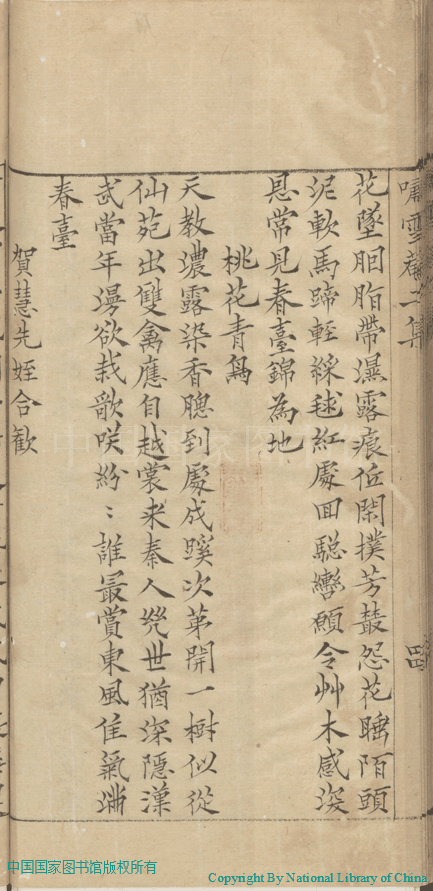 嘯雪菴二集 四
花墜胭脂帶濕露痕低閑撲芳叢怨花睡陌頭
泥軟馬蹄輕綵毬紅處回驄轡願令艸木感深
恩常見春臺錦為地
桃花青鳥
天教濃露染香聰到處成蹊次第開一樹似從
仙苑出雙禽應自越裳来秦人㡬世猶深隱漢
武當年漫欲栽歌咲紛〻誰最賞東風佳氣滿
春臺
賀慧先姪合歡
中国国家图书馆版权所有
Copyright By National Library of China